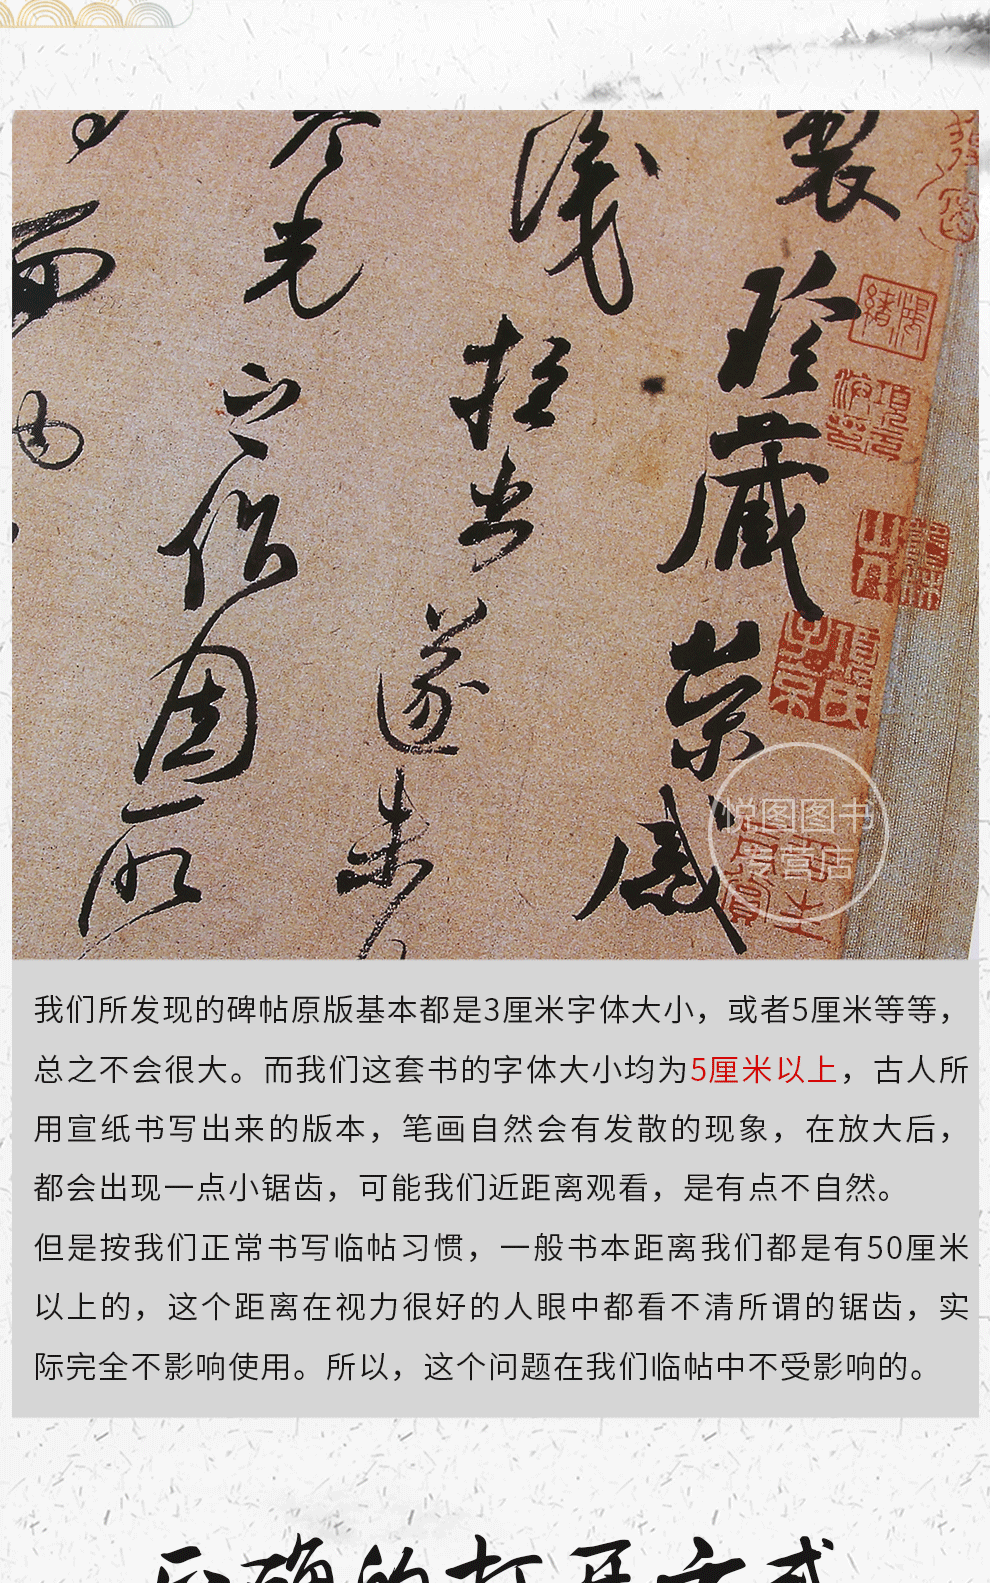 製珍藏榮感
淺拙書遂未
光
作周所
而
由
項氏
子京
悦图图书
专营店
我们所发现的碑帖原版基本都是3厘米字体大小，或者5厘米等等，
总之不会很大。而我们这套书的字体大小均为5厘米以上，古人所
用宣纸书写出来的版本，笔画自然会有发散的现象，在放大后，
都会出现一点小锯齿，可能我们近距离观看，是有点不自然。
但是按我们正常书写临帖习惯，一般书本距离我们都是有50厘米
以上的，这个距离在视力很好的人眼中都看不清所谓的锯齿，实
际完全不影响使用。所以，这个问题在我们临帖中不受影响的。
正确的打开方式